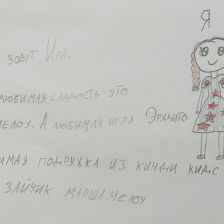 Я
зовут Ира.
любимая сладость - это
мелоу. А любимая игра Эрудито
имая подружка из кинди кидс
зайчик марша мелоу